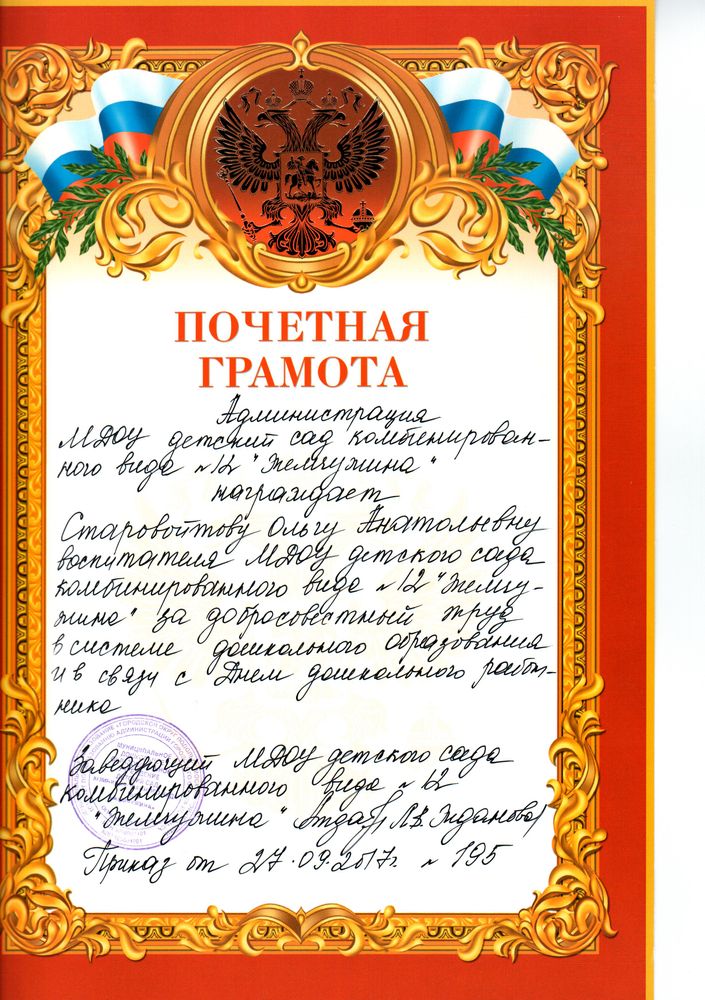 ПОЧЕТНАЯ
ГРАМОТА
Администрация
МДОУ детский сад комбинирован-
ного вида №12 "Жемчужина"
награждает
Старовойтову Ольгу Анатольевну
воспитателя МДОУ детского сада
комбинированного вида №12 "Жемчу-
жина" за добросовестный труд
в системе дошкольного образования
и в связи с Днем дошкольного работ-
ника
Заведующий МДОУ детского сада
комбинированного вида №12
"Жемчужина" Л.В. Жданова/
Приказ от 27.09.2017г. №195